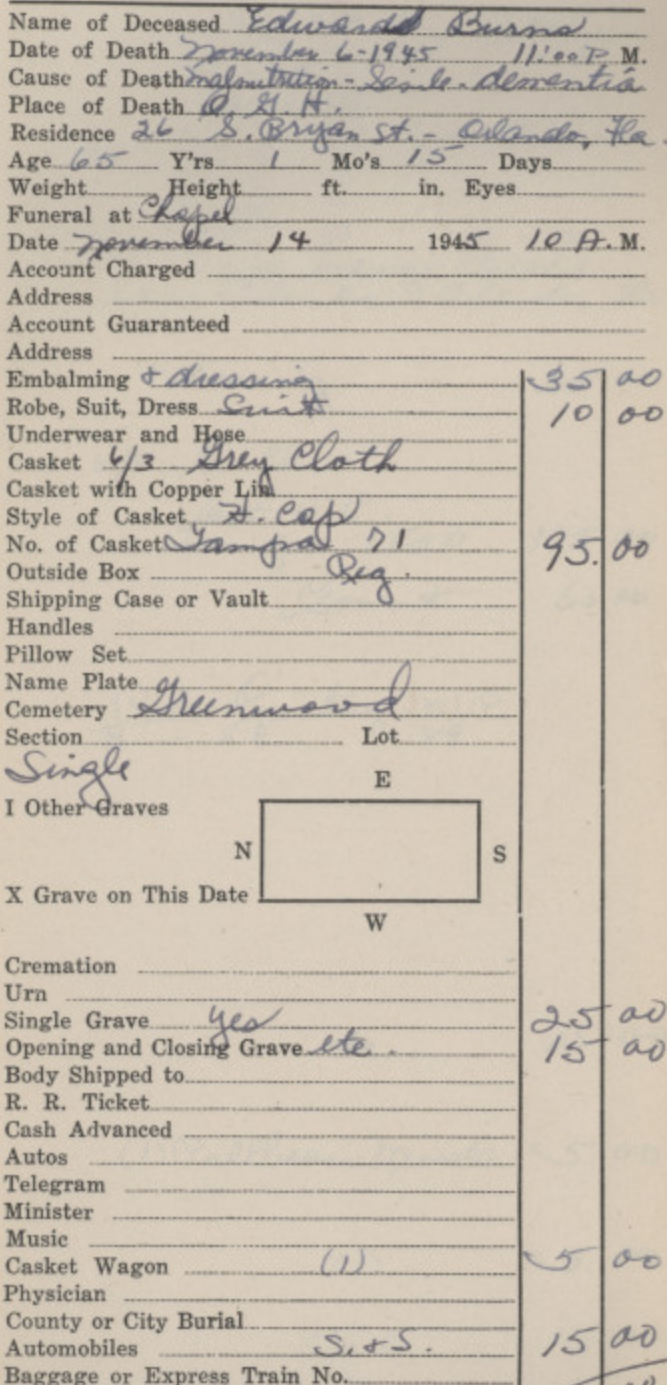 Name of Deceased Edward Burns
Date of Death November 6-1945 11:00 P. M.
Cause of Death malnutrition - Senile - dementia
Place of Death O. G. H.
Residence 26 S. Bryan St. - Orlando, Fla.
Age 65 Y'rs 1 Mo's 15 Days
Weight Height ft. in. Eyes
Funeral at Chapel
Date November 14 1945 10 A. M.
Account Charged
Address
Account Guaranteed
Address
Embalming & dressing 35 00
Robe, Suit, Dress Suit 10 00
Underwear and Hose
Casket 6/3 Grey Cloth
Casket with Copper Lin
Style of Casket H. Cap
No. of Casket Tampa 71 95.00
Outside Box Reg.
Shipping Case or Vault
Handles
Pillow Set
Name Plate
Cemetery Greenwood
Section Lot
Single
E
I Other Graves
N S
X Grave on This Date
W
Cremation
Urn
Single Grave yes 25 00
Opening and Closing Grave etc. 15 00
Body Shipped to
R. R. Ticket
Cash Advanced
Autos
Telegram
Minister
Music
Casket Wagon (1) 5 00
Physician
County or City Burial
Automobiles S. & S. 15 00
Baggage or Express Train No.